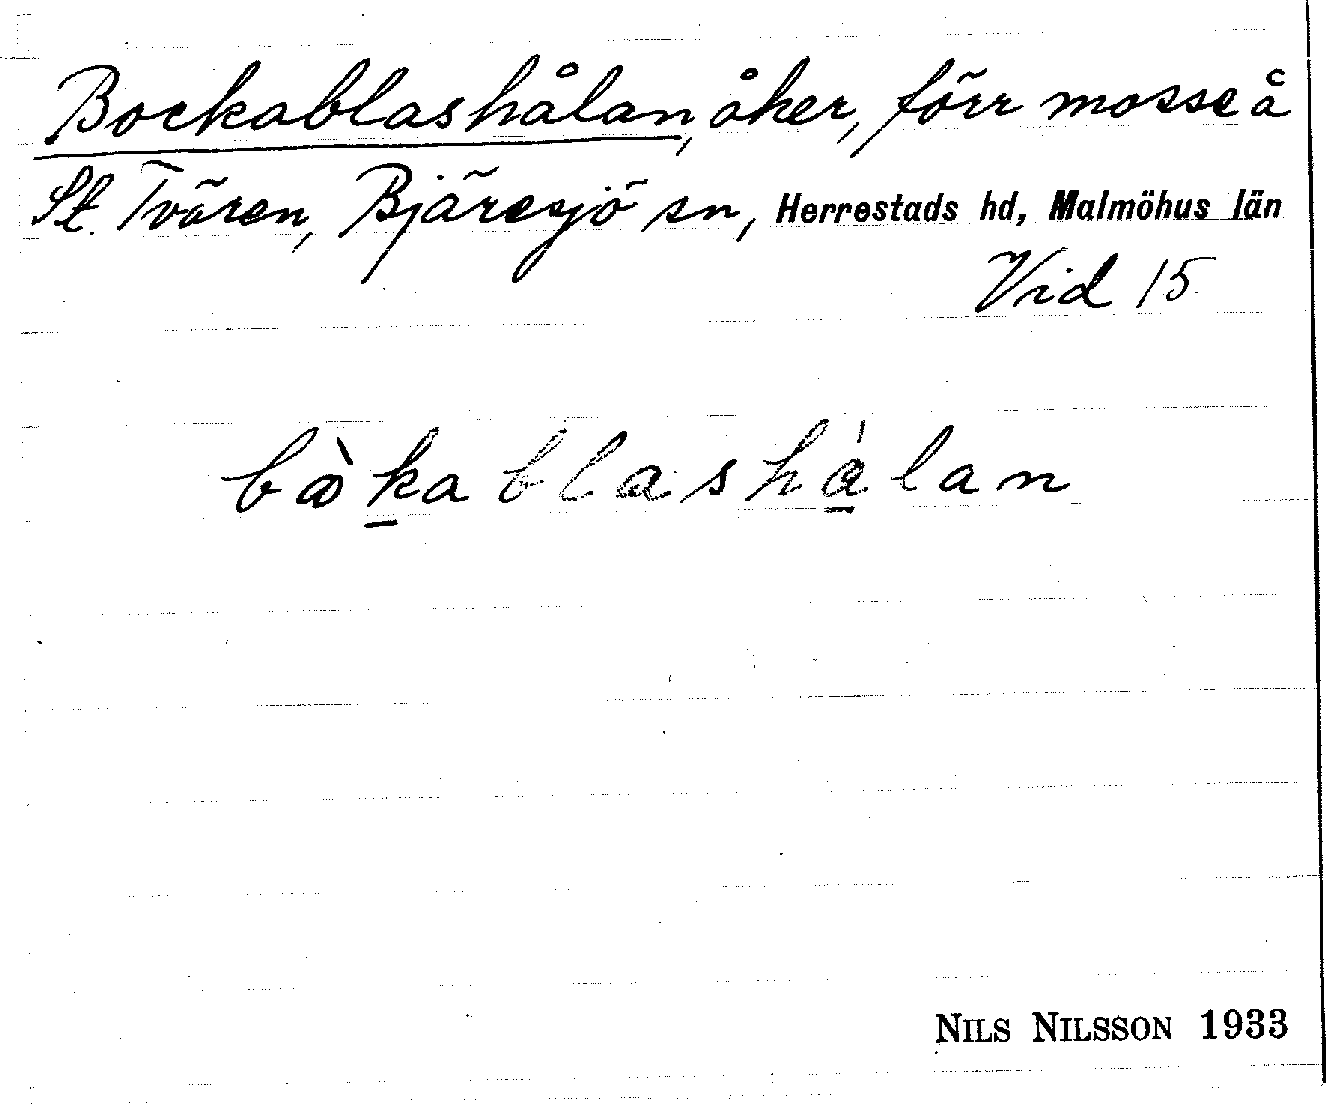 Bockablashålan, åker, förr mosse å
St. Tvären, Bjäresjö sn, Herrestads hd, Malmöhus län
Vid 15
bàkablashálan
NILS NILSSON 1933